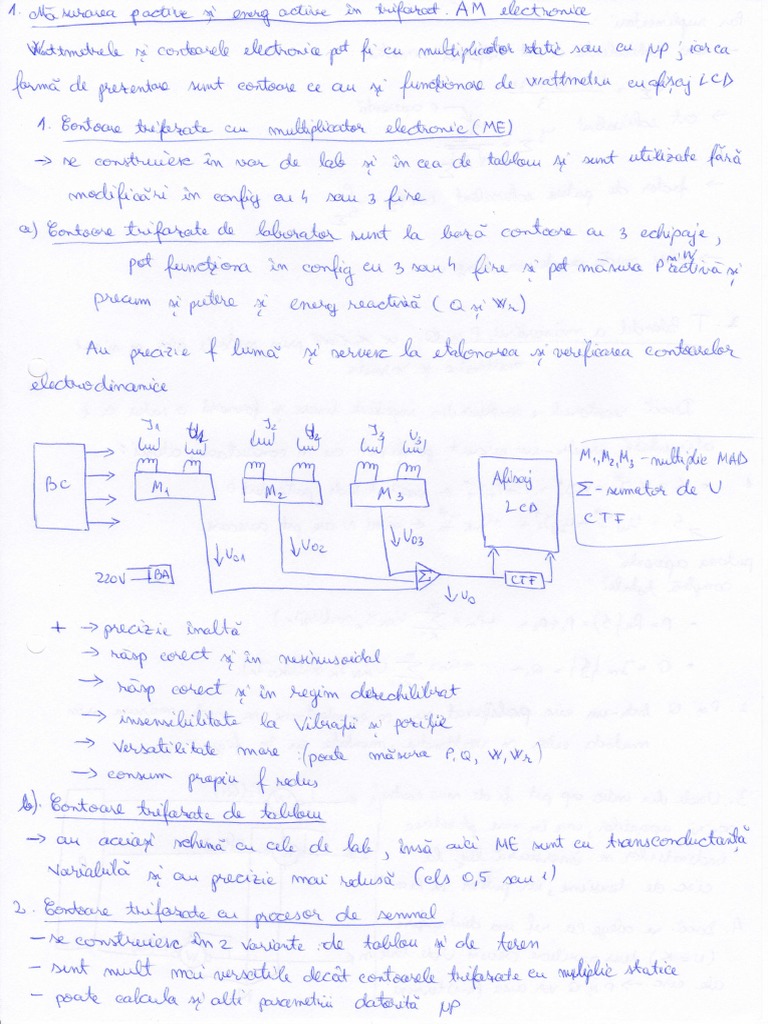 1. Măsurarea p active și energ active în trifazat. AM electronice
Wattmetrele și contoarele electronice pot fi cu multiplicator static sau cu μP; iar ca
formă de prezentare sunt contoare ce au și funcționare de wattmetru cu afișaj LCD
1. Contoare trifazate cu multiplicator electronic (ME)
→ se construiesc în var de lab și în cea de tablou și sunt utilizate fără
modificări în config cu 4 sau 3 fire
a) Contoare trifazate de laborator sunt la bază contoare cu 3 echipaje,
pot funcționa în config cu 3 sau 4 fire și pot măsura P și W activă și
precum și putere și energ reactivă (Q și Wr)
Au precizie f bună și servesc la etalonarea și verificarea contoarelor
electrodinamice
I1 U1 I2 U2 I3 U3
BC M1 M2 M3
Afișaj
LCD
M1, M2, M3 - multiplic MAD
Σ - sumator de U
CTF
U01 U02 U03
220V BA Σ CTF
U0
+ → precizie înaltă
→ răsp corect și în nesinusoidal
→ răsp corect și în regim dezechilibrat
→ insensibilitate la vibrații și poziție
→ versatilitate mare :(poate măsura P, Q, W, Wr)
→ consum propiu f redus
b). Contoare trifazate de tablou
→ au aceiași schemă cu cele de lab, însă aici ME sunt cu transconductanță
variabilă și au precizie mai redusă (cls 0,5 sau 1)
2. Contoare trifazate cu procesor de semnal
- se construiesc în 2 variante: de tablou și de teren
- sunt mult mai versatile decât contoarele trifazate cu multiplic statice
- poate calcula și alti parametrii datorită μP